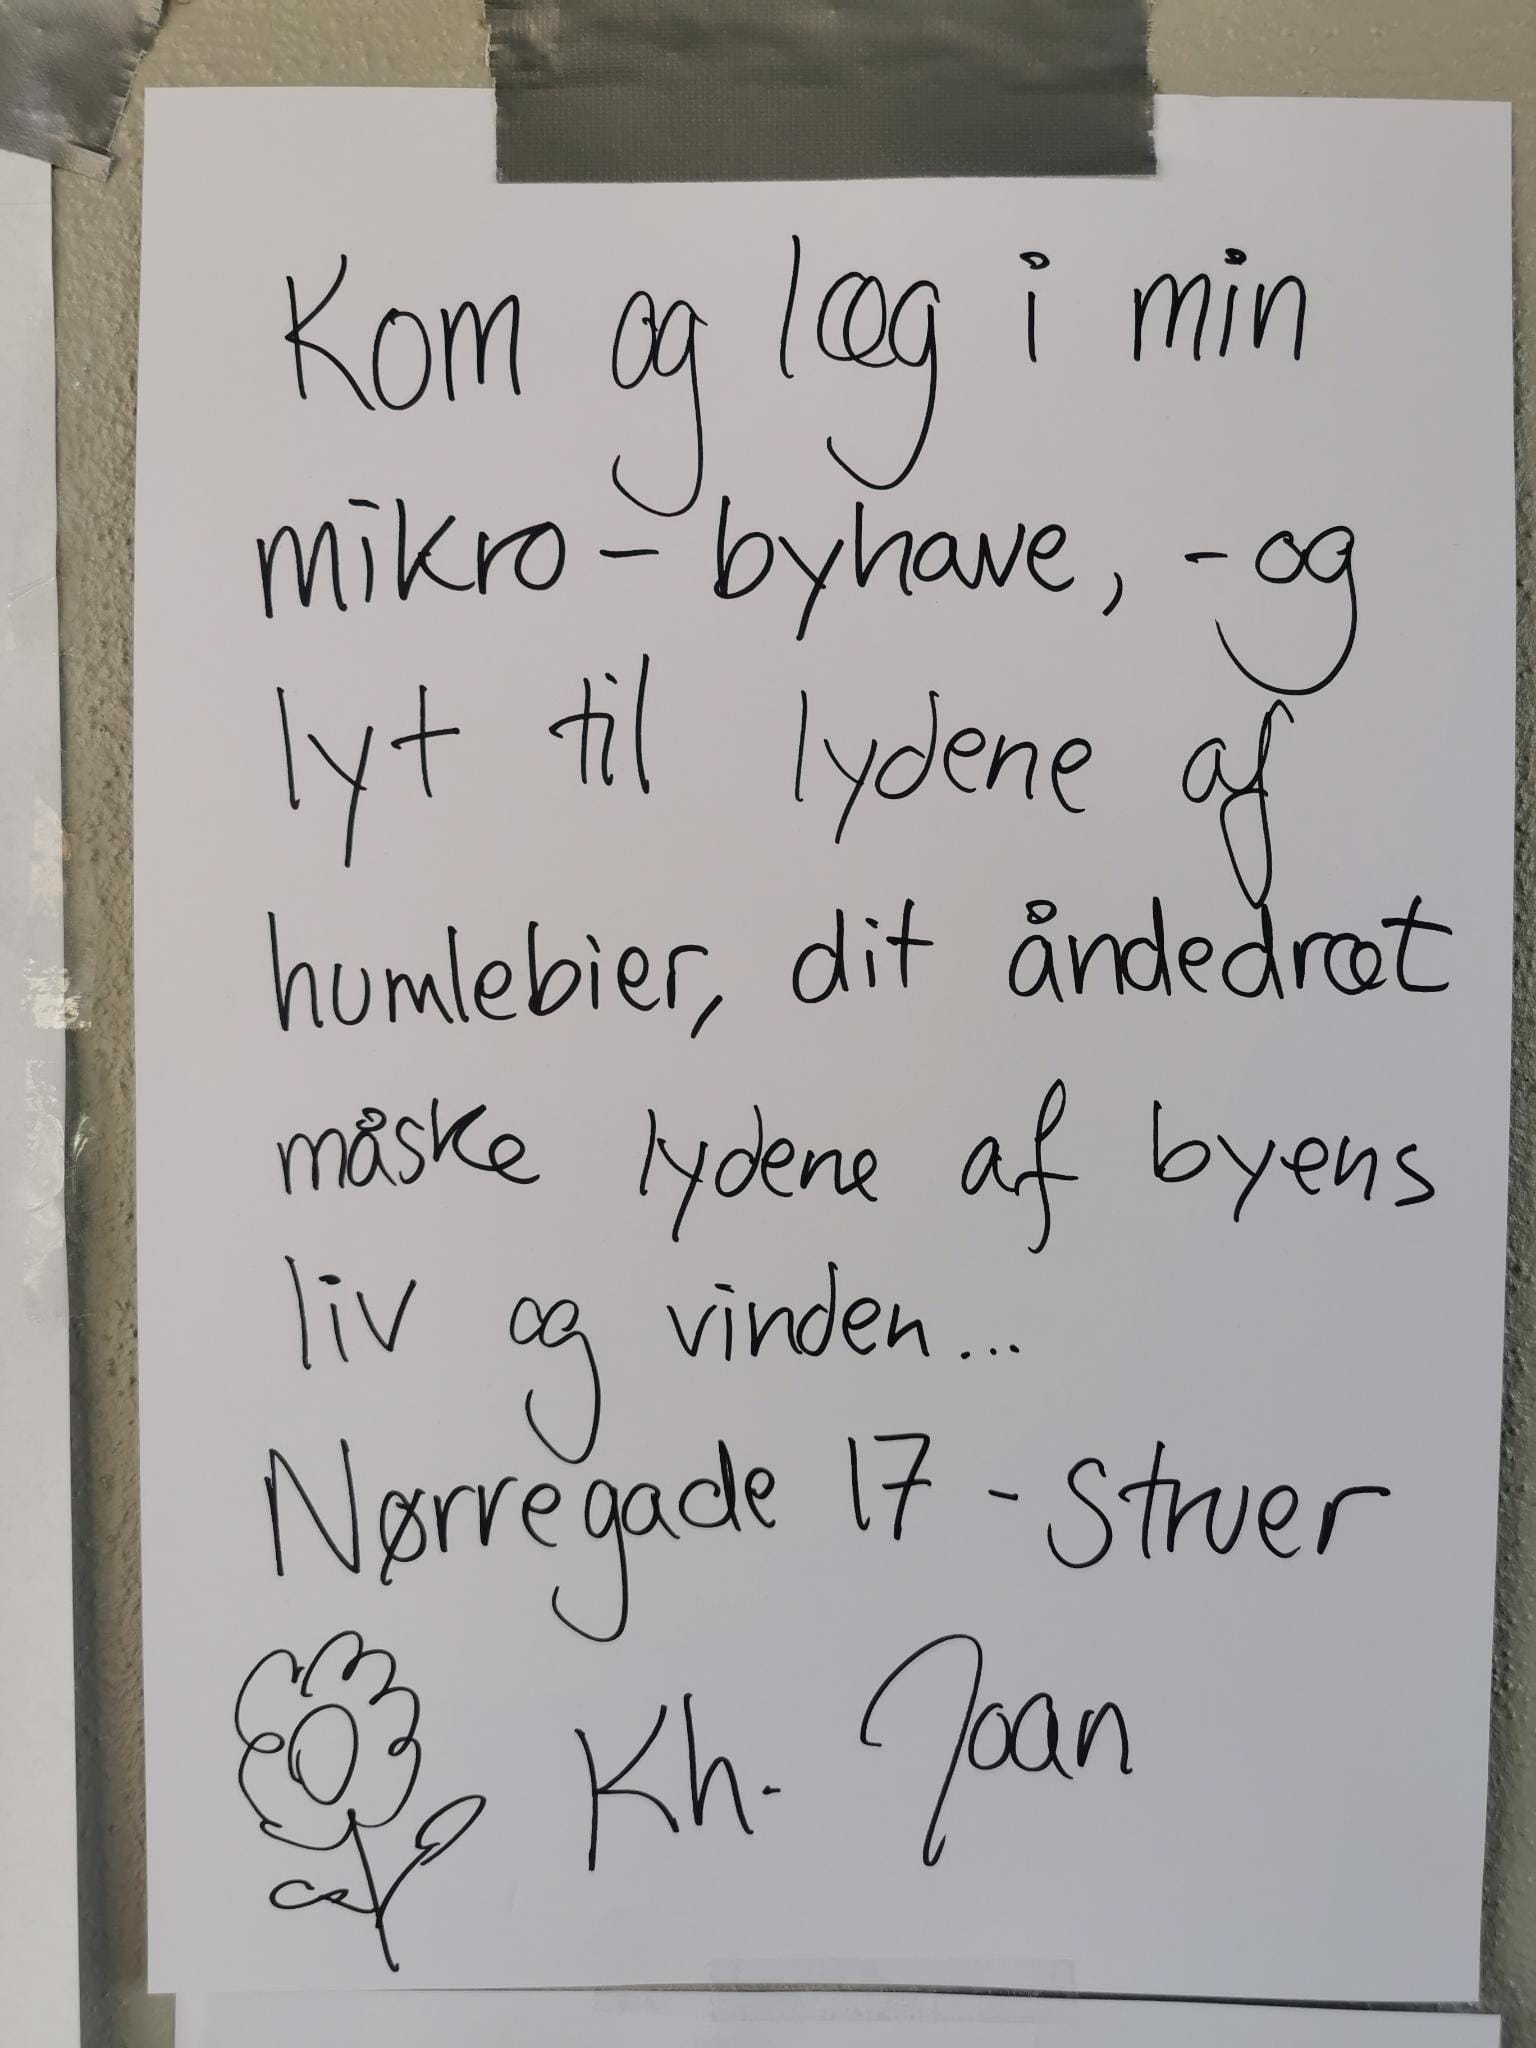 Kom og læg i min
mikro-byhave, -og
lyt til lydene af
humlebier, dit åndedræt
måske lydene af byens
liv og vinden...
Nørregade 17 - Struer
Kh. Joan